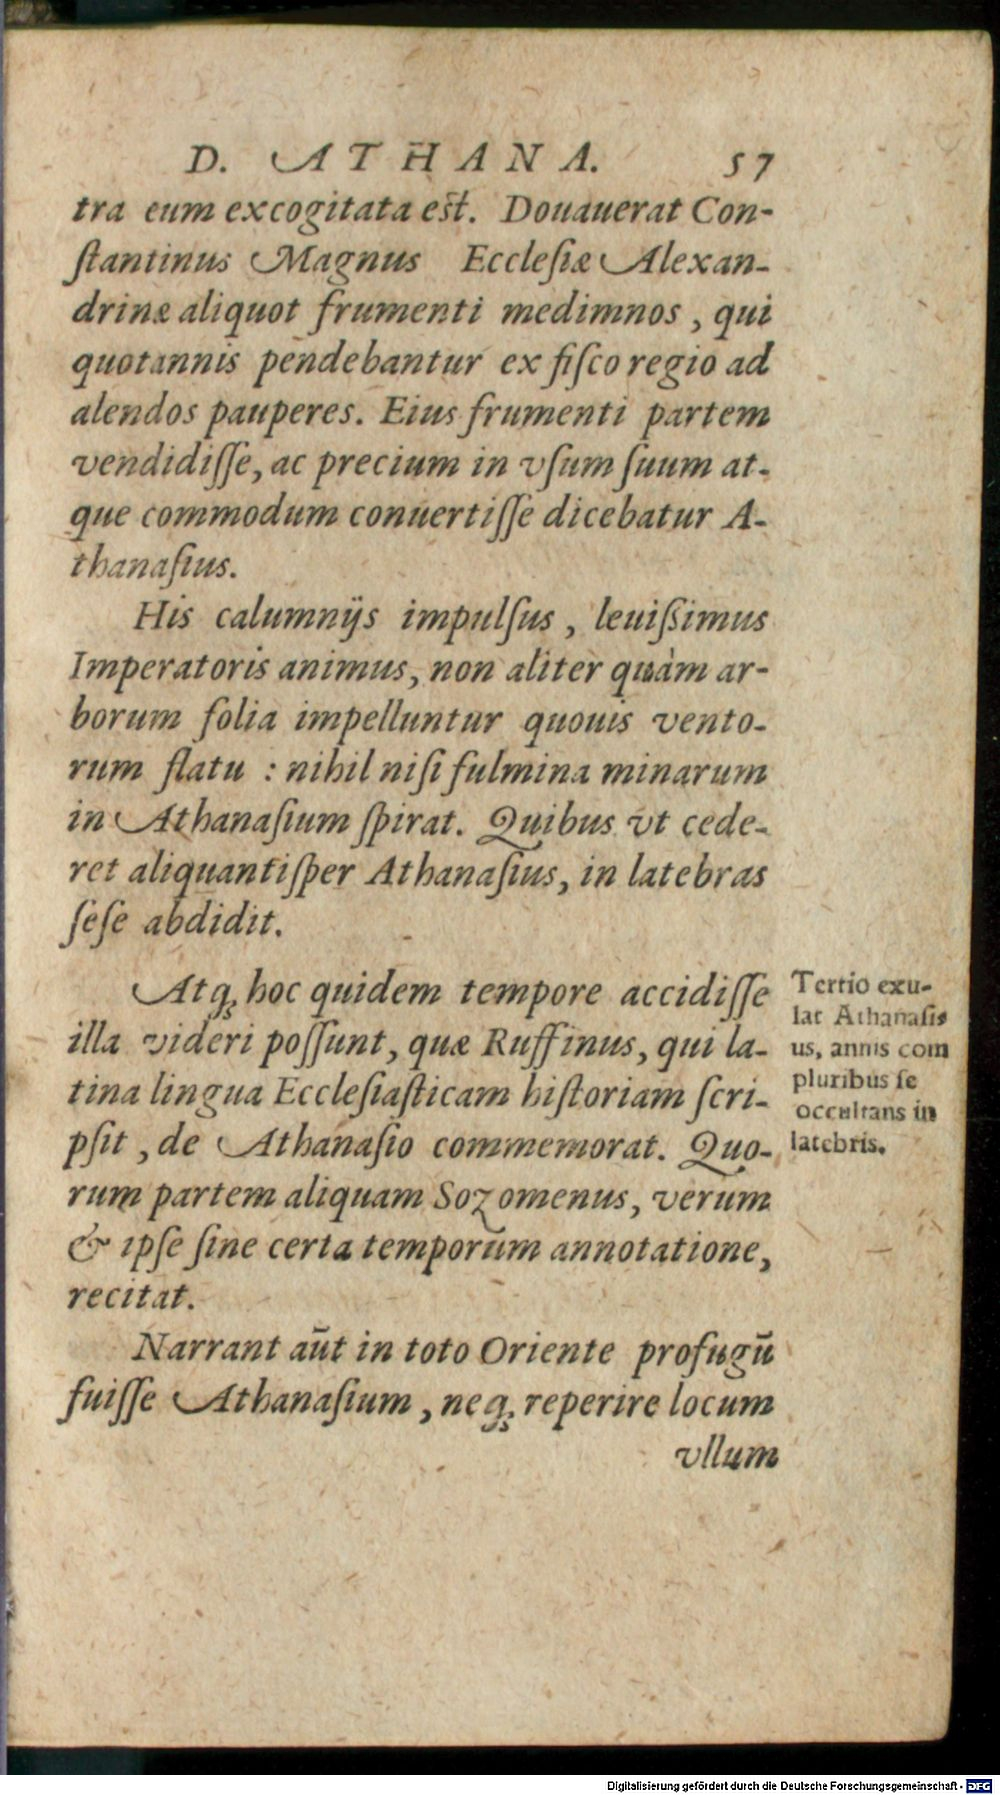 D. ATHANA. 57
tra eum excogitata est. Douauerat Con-
ſtantinus Magnus Eccleſiæ Alexan-
drinæ aliquot frumenti medimnos, qui
quotannis pendebantur ex fiſco regio ad
alendos pauperes. Eius frumenti partem
vendidiſſe, ac precium in vſum ſuum at-
que commodum conuertiſſe dicebatur A-
thanaſius.
His calumnijs impulſus, leuiſsimus
Imperatoris animus, non aliter quàm ar-
borum folia impelluntur quouis vento-
rum flatu : nihil niſi fulmina minarum
in Athanaſium ſpirat. Quibus vt cede-
ret aliquantiſper Athanaſius, in latebras
ſeſe abdidit.
Atq; hoc quidem tempore accidiſſe
illa videri poſſunt, quæ Ruffinus, qui la-
tina lingua Eccleſiaſticam hiſtoriam ſcri-
pſit, de Athanaſio commemorat. Quo-
rum partem aliquam Sozomenus, verum
& ipſe ſine certa temporum annotatione,
recitat.
Narrant aūt in toto Oriente profugū
fuiſſe Athanaſium, neq; reperire locum
vllum
Tertio exu-
lat Athanaſis
us, annis com
pluribus ſe
occultans in
latebris.
Digitalisierung gefördert durch die Deutsche Forschungsgemeinschaft - DFG